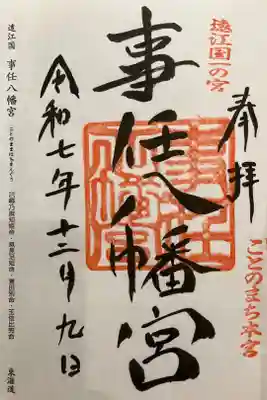 奉拝
遠江国一の宮
ことのまち本宮
事任八幡宮
令和七年十二月九日
遠江国 事任八幡宮
東海道